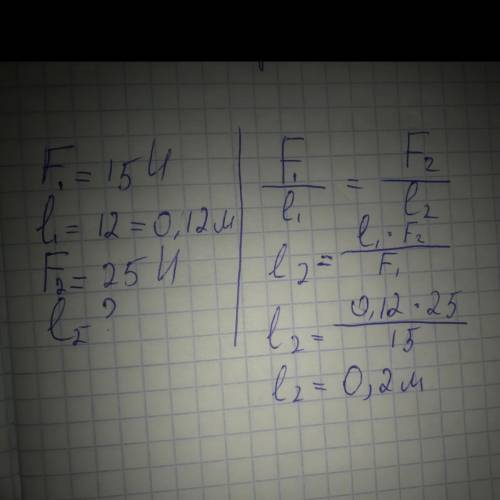 F₁ = 15 Н
l₁ = 12 = 0,12 м
F₂ = 25 Н
l₂ ?
F₁/l₁ = F₂/l₂
l₂ = l₁ · F₂/F₁
l₂ = 0,12 · 25/15
l₂ = 0,2 м